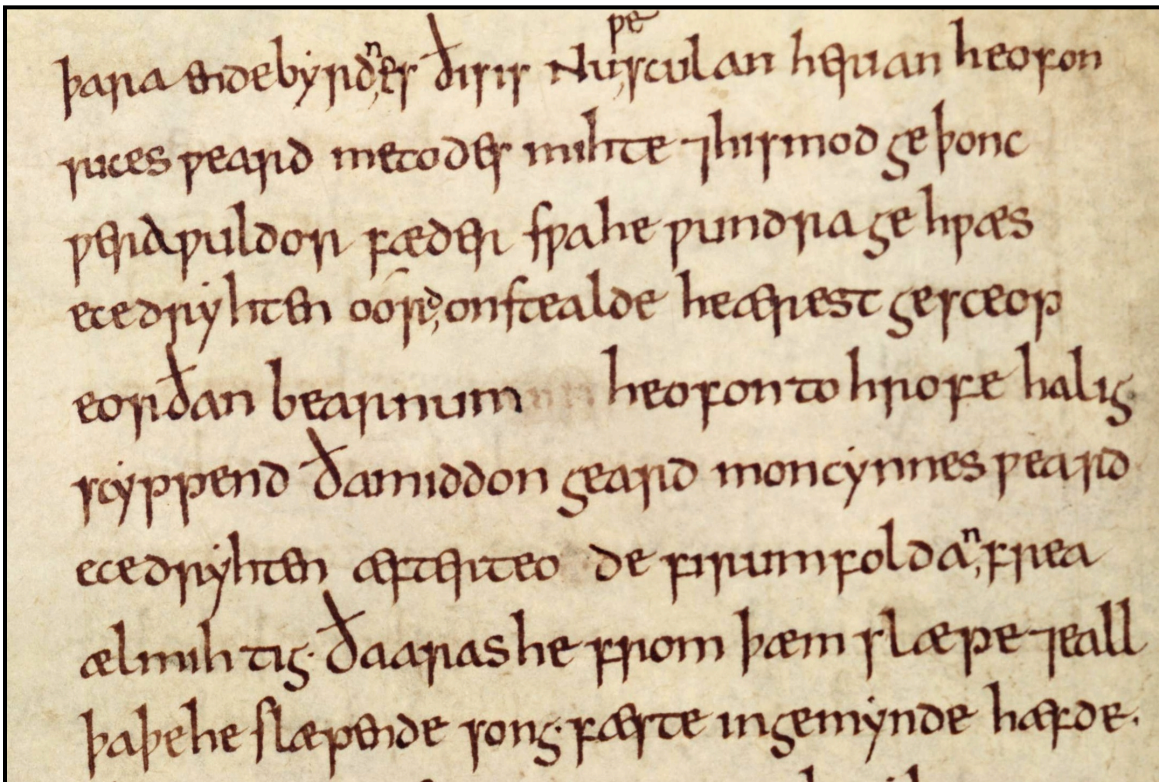 þara endebyrdnes ðisis Nu ƿe sculan herian heofon
rices ƿeard metodes mihte ⁊hismod geþonc
ƿera ƿuldor fæder sƿahe ƿundra ge hƿæs
ecedryhten oórd onstealde heærest gesceop
eorðan bearnum heofonto hrofe halig
scyppend ðamiddon geard moncynnes ƿeard
ecedryhten æfterteo de firumfoldan frea
ælmihtig· ðaarashe from þæm slæpe ⁊eall
þaþehe slæpende song· fæste ingemynde hæfde·